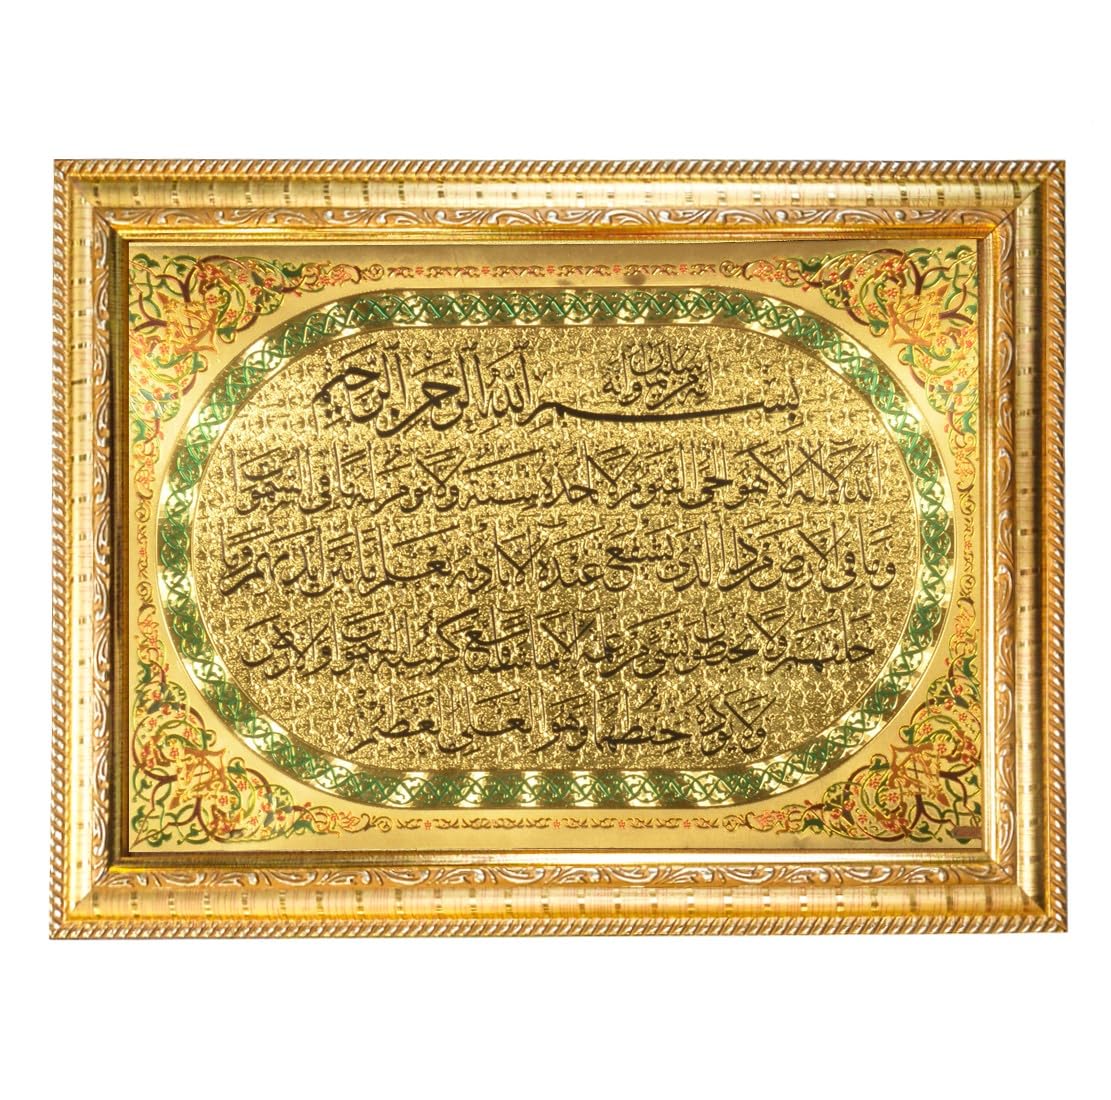 بسم الله الرحمن الرحيم
الله لا اله الا هو الحي القيوم لا تأخذه سنة ولا نوم له ما في السموات
وما في الارض من ذا الذي يشفع عنده الا باذنه يعلم ما بين ايديهم وما
خلفهم ولا يحيطون بشيء من علمه الا بما شاء وسع كرسيه السموات والارض
ولا يؤده حفظهما وهو العلي العظيم